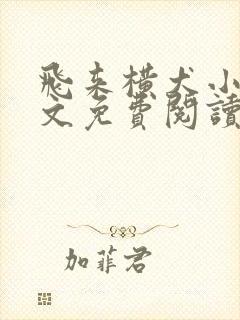 飛来横犬小
文免費閱讀
加菲君